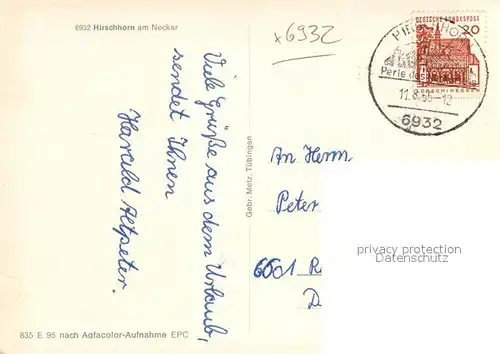 6932 Hirschhorn am Neckar
x 6932
DEUTSCHE BUNDESPOST
20
LORSCH/HESSEN
Perle des
11.8.66-12
6932
Viele Grüße aus dem Urlaub,
sendet Ihnen
Harald Altpeter.
Gebr. Metz, Tübingen
An Herrn
Peter
6601 R
D
privacy protection
Datenschutz
835 E 95 nach Agfacolor-Aufnahme EPC